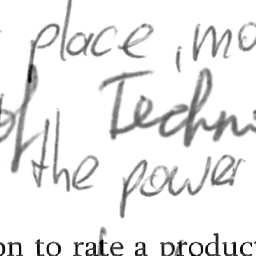 place, mo
of Techni
the power
on to rate a product